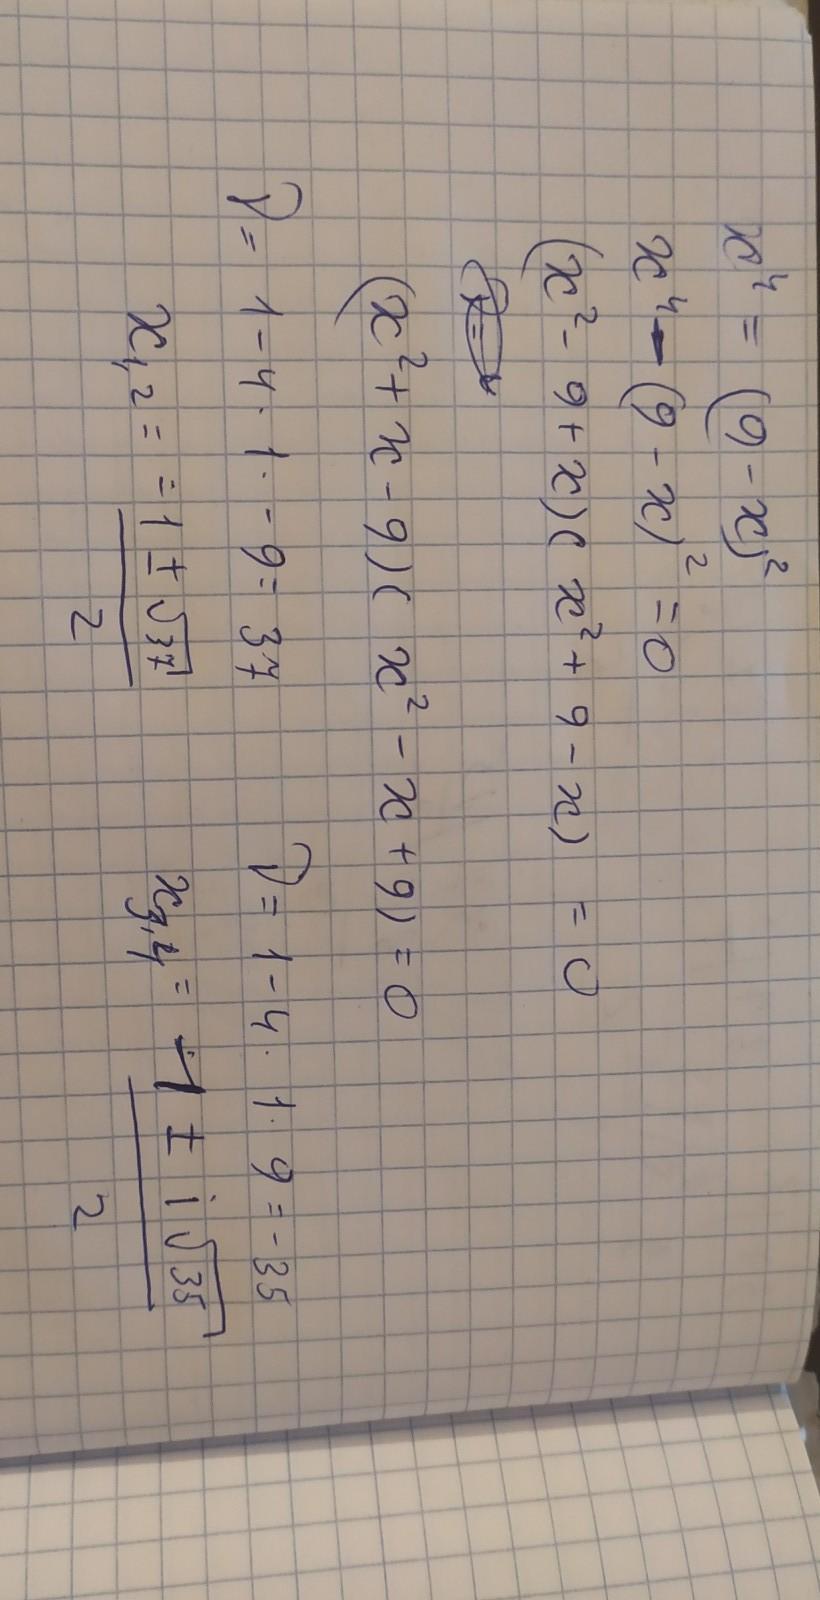 x⁴ = (9 - x)²
x⁴ - (9 - x)² = 0
(x² - 9 + x)(x² + 9 - x) = 0
(x² + x - 9)(x² - x + 9) = 0
D = 1 - 4 · 1 · -9 = 37 D = 1 - 4 · 1 · 9 = -35
x₁,₂ = = 1 ± √37 / 2 x₃,₄ = 1 ± i√35 / 2